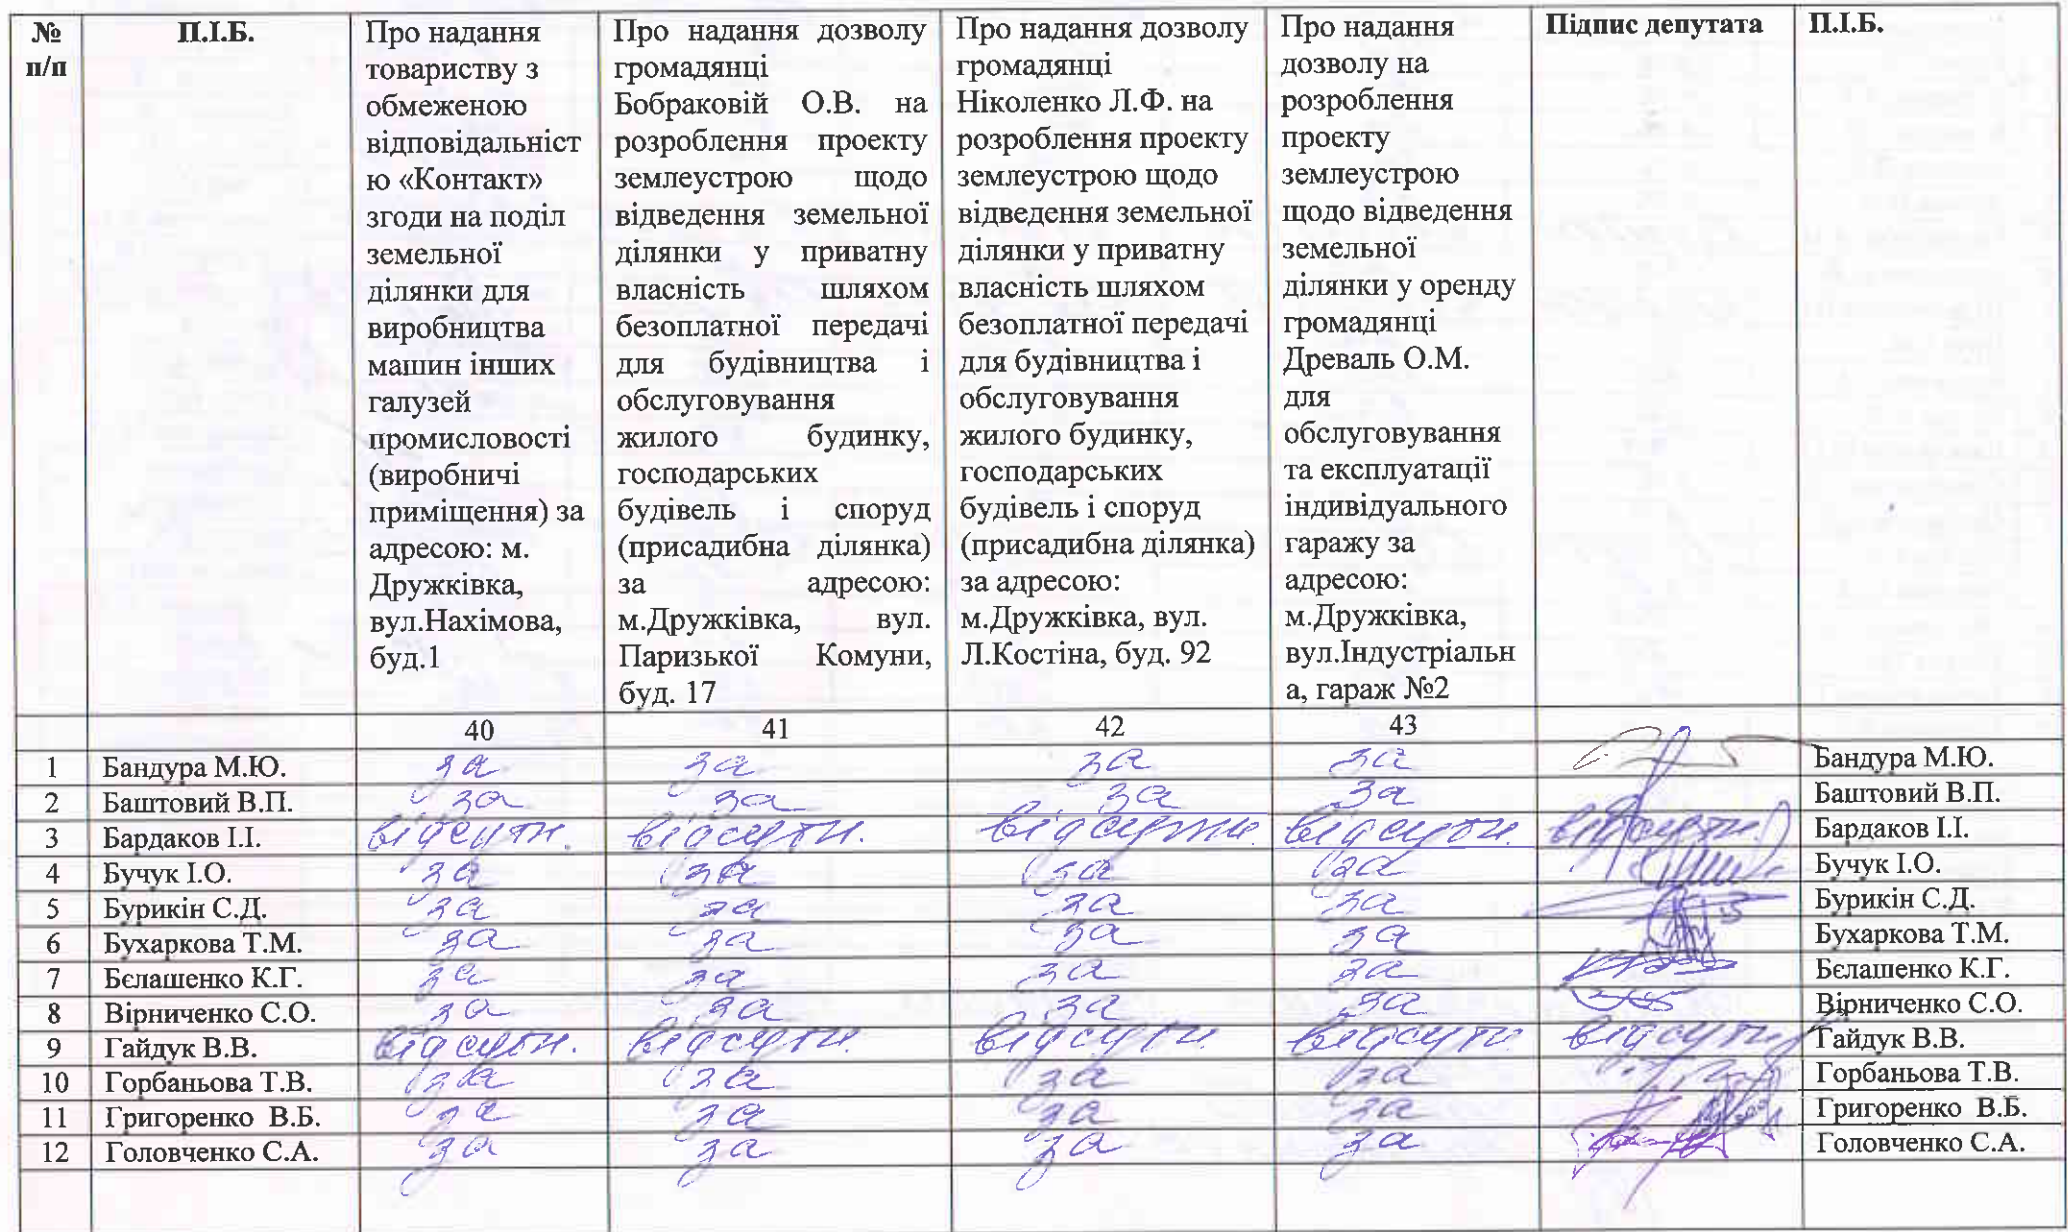 № п/п
П.І.Б.
Про надання
товариству з
обмеженою
відповідальніст
ю «Контакт»
згоди на поділ
земельної
ділянки для
виробництва
машин інших
галузей
промисловості
(виробничі
приміщення) за
адресою: м.
Дружківка,
вул.Нахімова,
буд.1
Про надання дозволу
громадянці
Бобраковій О.В. на
розроблення проекту
землеустрою щодо
відведення земельної
ділянки у приватну
власність шляхом
безоплатної передачі
для будівництва і
обслуговування
жилого будинку,
господарських
будівель і споруд
(присадибна ділянка)
за адресою:
м.Дружківка, вул.
Паризької Комуни,
буд. 17
Про надання дозволу
громадянці
Ніколенко Л.Ф. на
розроблення проекту
землеустрою щодо
відведення земельної
ділянки у приватну
власність шляхом
безоплатної передачі
для будівництва і
обслуговування
жилого будинку,
господарських
будівель і споруд
(присадибна ділянка)
за адресою:
м.Дружківка, вул.
Л.Костіна, буд. 92
Про надання
дозволу на
розроблення
проекту
землеустрою
щодо відведення
земельної
ділянки у оренду
громадянці
Древаль О.М.
для
обслуговування
та експлуатації
індивідуального
гаражу за
адресою:
м.Дружківка,
вул.Індустріальн
а, гараж №2
Підпис депутата
П.І.Б.
40 41 42 43
1 Бандура М.Ю. за за за за Бандура М.Ю.
2 Баштовий В.П. за за за за Баштовий В.П.
3 Бардаков І.І. відсутн. відсутн. відсутн. відсутн. відсутн. Бардаков І.І.
4 Бучук І.О. за за за за Бучук І.О.
5 Бурикін С.Д. за за за за Бурикін С.Д.
6 Бухаркова Т.М. за за за за Бухаркова Т.М.
7 Бєлашенко К.Г. за за за за Бєлашенко К.Г.
8 Вірниченко С.О. за за за за Вірниченко С.О.
9 Гайдук В.В. відсутн. відсутн. відсутн. відсутн. відсутн. Гайдук В.В.
10 Горбаньова Т.В. за за за за Горбаньова Т.В.
11 Григоренко В.Б. за за за за Григоренко В.Б.
12 Головченко С.А. за за за за Головченко С.А.